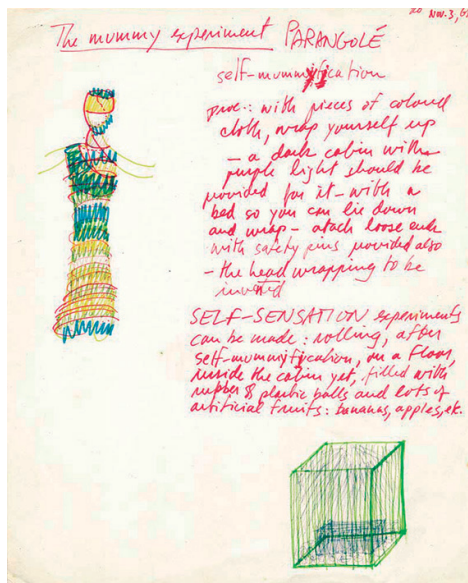 Nov. 3, 6
The mummy experiment PARANGOLÉ
self-mummification
proc.: with pieces of colored
cloth, wrap yourself up
– a dark cabin with
purple light should be
provided for it – with a
bed so you can lie down
and wrap – atach loose ends
with safety pins provided also
– the head wrapping to be
invented
SELF-SENSATION experiments
can be made: rolling, after
self-mummification, on a floor,
inside the cabin yet, filled with
rubber & plastic balls and lots of
artificial fruits: bananas, apples, etc.